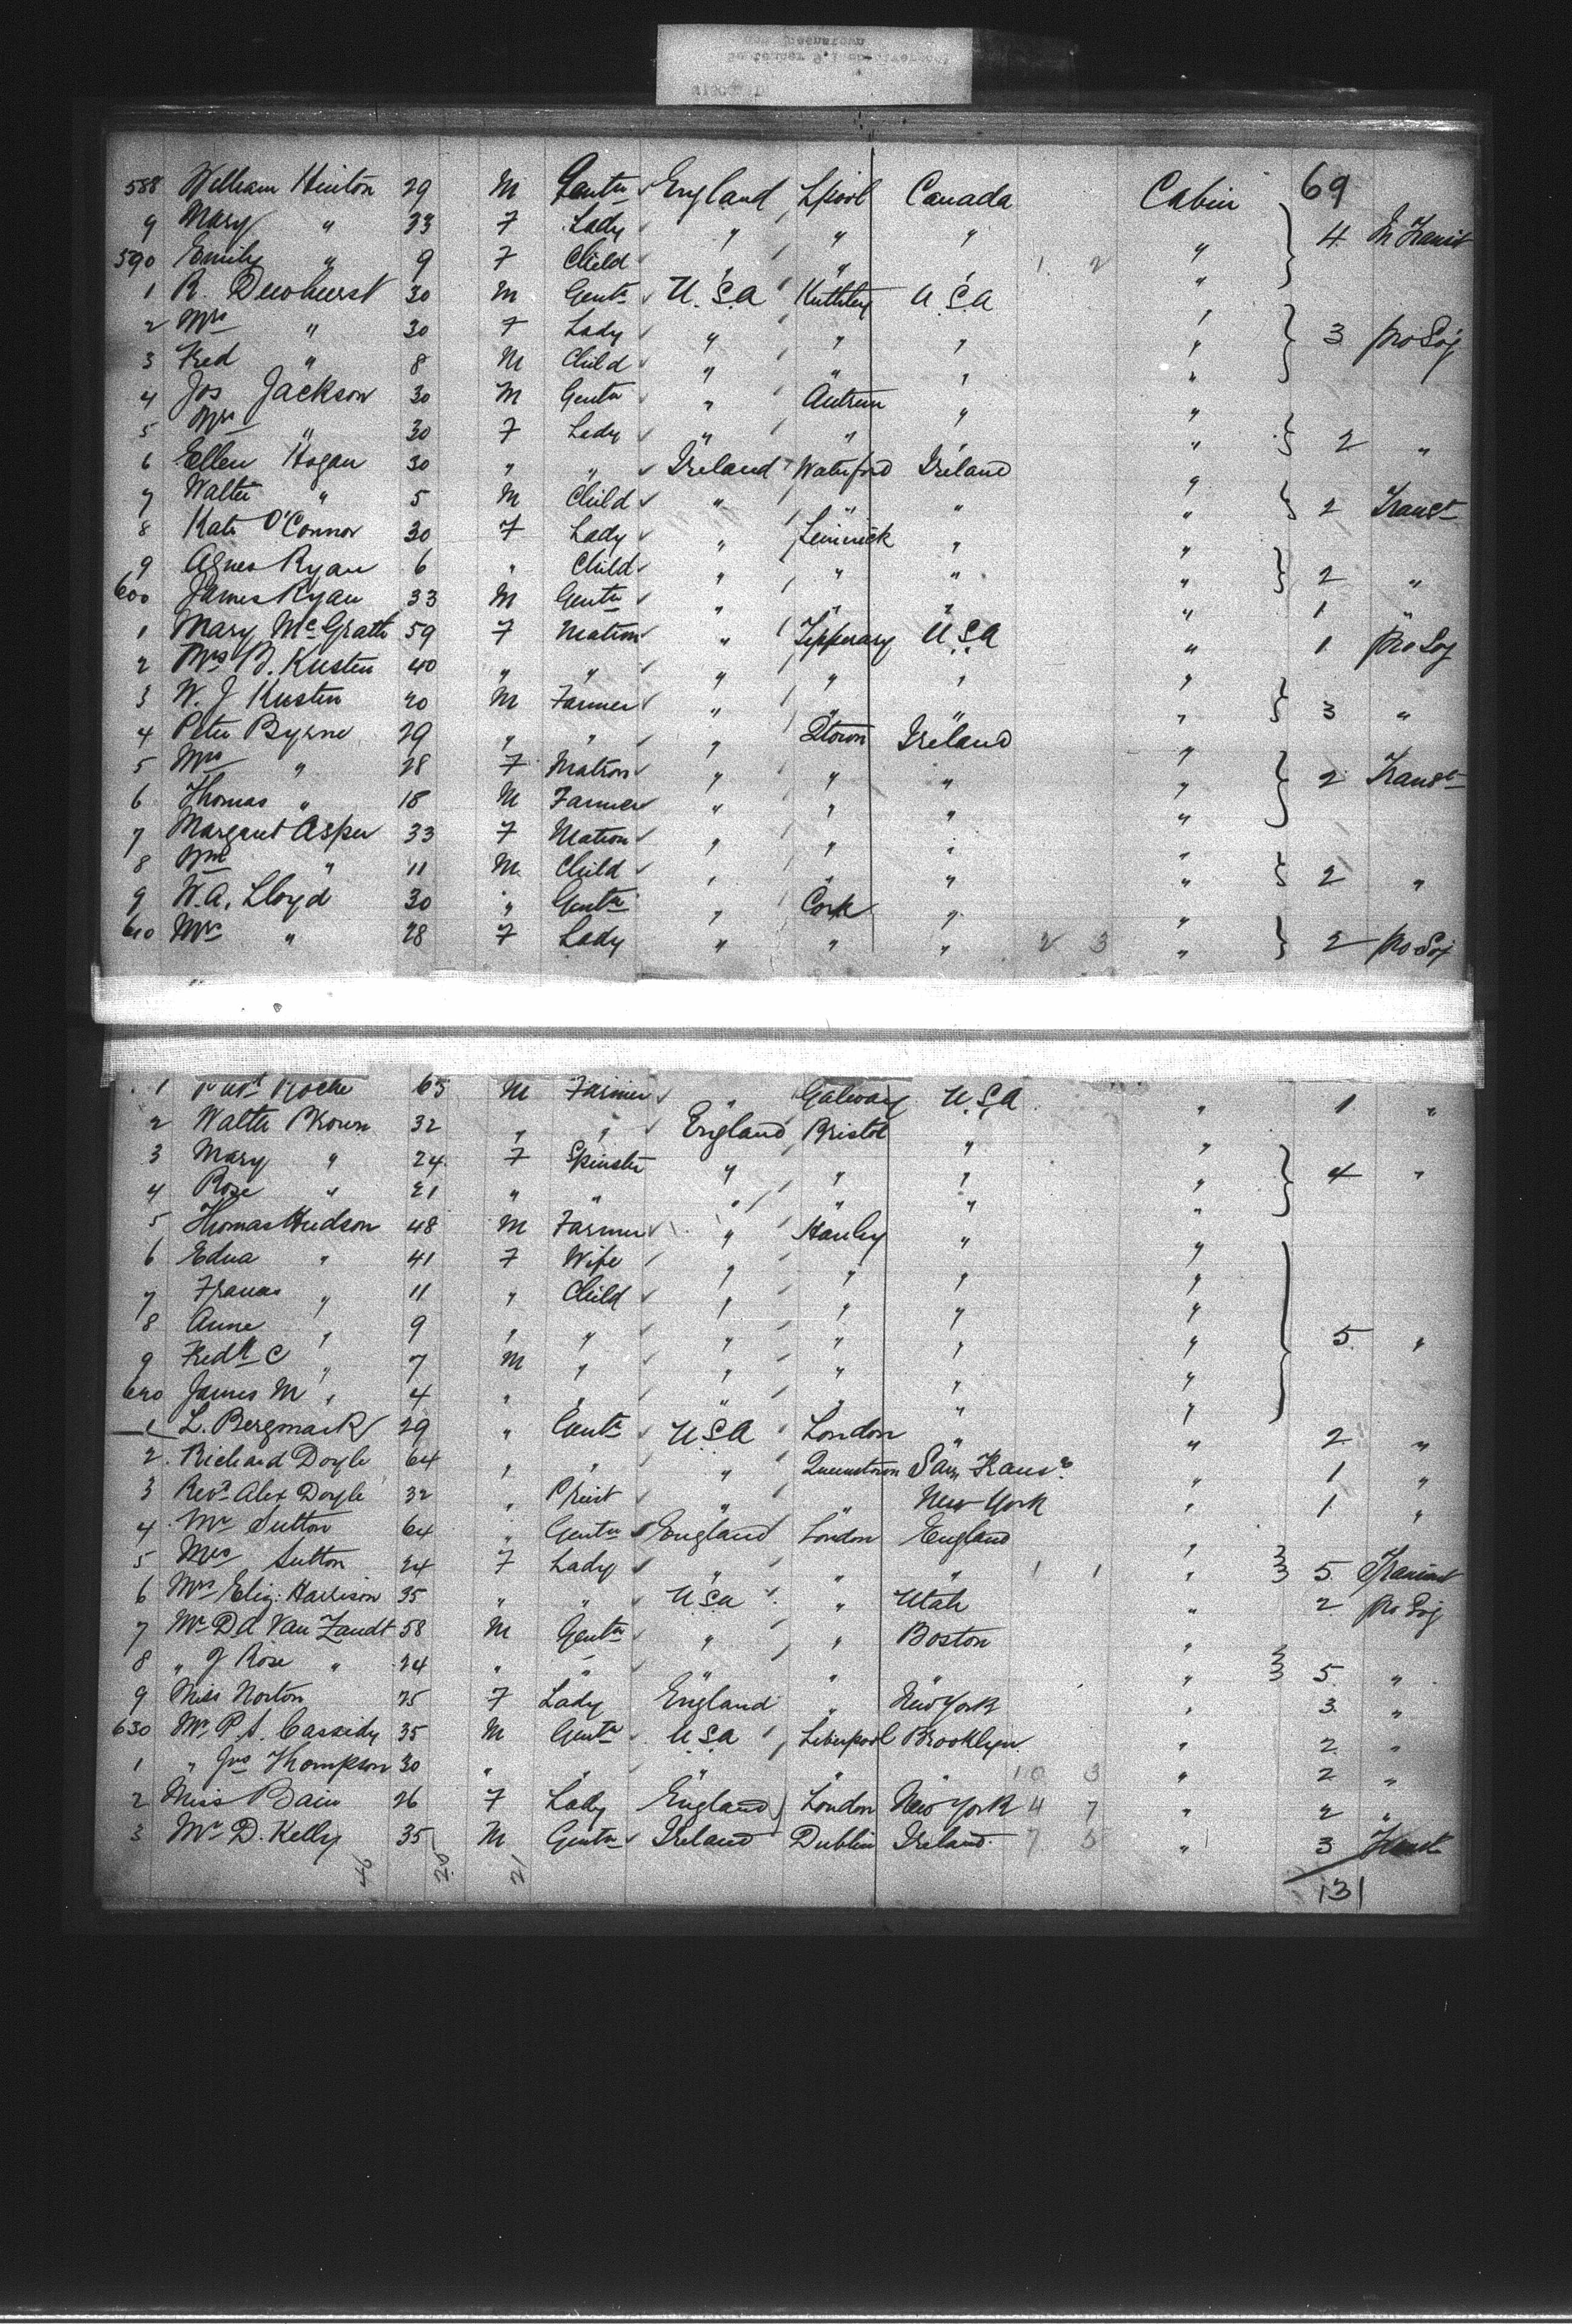 69
588 William Hinton 29 M Gentn England Lpool Canada Cabin
9 Mary " 33 F Lady " " " " 4 In Transit
590 Emily " 9 F Child " " " 1 2 "
1 R. Dewhurst 30 M Gentn U.S.A U.S.A "
2 Mrs " 30 F Lady " " " " 3 pro Soj
3 Fred " 8 M Child " " " "
4 Jos Jackson 30 M Gentn " Antrim " "
5 Mrs " 30 F Lady " " " " 2 "
6 Ellen Hogan 30 " " Ireland Waterford Ireland "
7 Walter " 5 M Child " " " " 2 Transt
8 Kate O'Connor 30 F Lady " Limerick " "
9 Agnes Ryan 6 " Child " " " " 2 "
600 James Ryan 33 M Gentn " " " " 1 "
1 Mary McGrath 59 F Matron " Tipperary U.S.A " 1 pro Soj
2 Mrs B. Kusten 40 " " " " " "
3 W. J Kusten 20 M Farmer " " " " 3 "
4 Peter Byrne 29 " " " Qtown Ireland "
5 Mrs " 28 F Matron " " " " 2 Transt
6 Thomas " 18 M Farmer " " " "
7 Margaret Asper 33 F Matron " " " "
8 Wm " 11 M Child " " " " 2 "
9 W.A. Lloyd 30 " Gentn " Cork " "
610 Mrs " 28 F Lady " " " 2 3 " 2 pro Soj
1 Roche 65 M Farmer " Galway U.S.A " 1 "
2 Walter Brown 32 " " England Bristol " "
3 Mary " 24 F Spinster " " " " 4 "
4 Rose " 21 " " " " " "
5 Thomas Hudson 48 M Farmer " Hanley " "
6 Edna " 41 F Wife " " " "
7 Frances " 11 " Child " " " "
8 Anne " 9 " " " " " " 5 "
9 Fredk C " 7 M " " " " "
620 James M " 4 " " " " " "
1 L. Bergmark 29 " Gentn U.S.A London " " 2 "
2 Richard Doyle 64 " " " Queenstown San Franso " 1 "
3 Revd Alex Doyle 32 " Priest " " New York " 1 "
4 Mr Sutton 64 " Gentn England London England "
5 Mrs Sutton 24 F Lady " " " 1 1 " 5 Transit
6 Mrs Eliz. Harrison 35 " " U.S.A " Utah " 2 pro Soj
7 Mr D A Van Zandt 58 M Gentn " " Boston "
8 " J Rose " 24 " " " " " 5 "
9 Miss Norton 25 F Lady England " New York " 3 "
630 Mr P. A. Cassidy 35 M Gentn U.S.A Liverpool Brooklyn " 2 "
1 " Jno Thompson 30 " " " " " 10 3 " 2 "
2 Miss Bain 26 F Lady England London New York 4 7 " 2 "
3 Mr D. Kelly 35 M Gentn Ireland Dublin Ireland 7 5 " 3 Transt
46 20 21
131